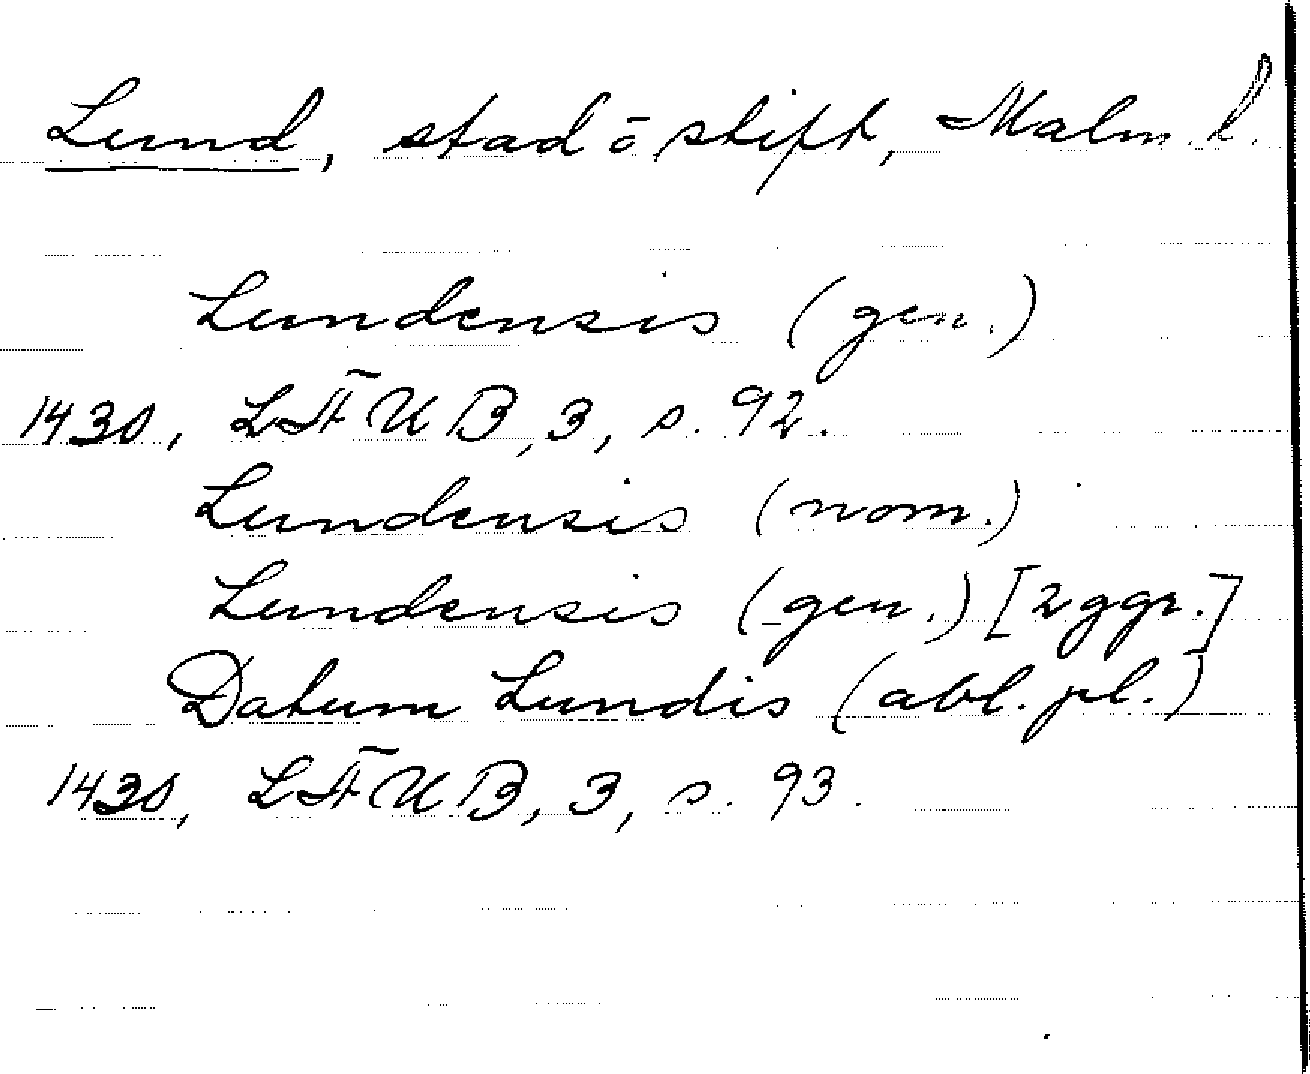 Lund, stad ō stift, Malm. l.
Lundensis (gen.)
1430, LÄUB, 3, s. 92.
Lundensis (nom.)
Lundensis (gen.) [2 ggr.]
Datum Lundis (abl. pl.)
1430, LÄUB, 3, s. 93.